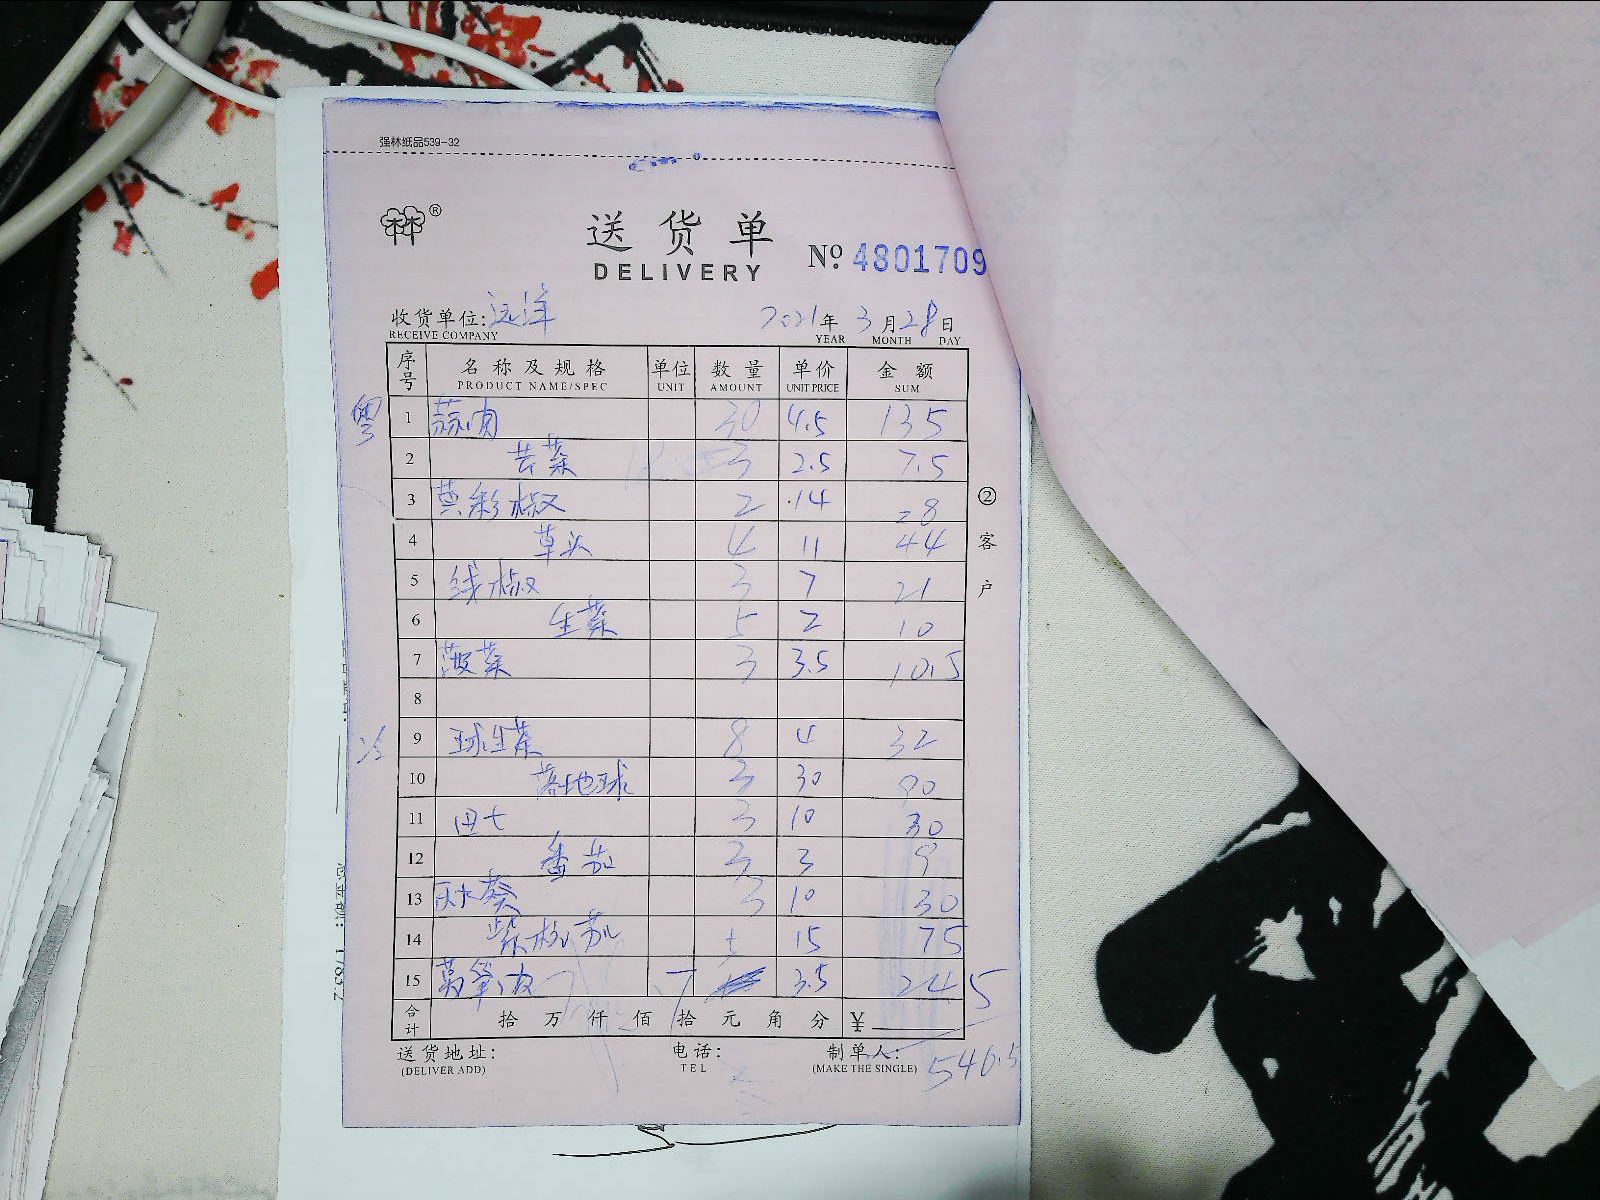 强林纸品539-32
林林®
送货单
DELIVERY
No. 4801709
收货单位: 远洋 2021年 3月28日
RECEIVE COMPANY YEAR MONTH DAY
序号 名称及规格 单位 数量 单价 金额
PRODUCT NAME/SPEC UNIT AMOUNT UNIT PRICE SUM
粤 1 蒜肉 30 4.5 135
2 芹菜 3 2.5 7.5
3 黄彩椒 2 14 28
4 草头 4 11 44
5 线椒 3 7 21
6 生菜 5 2 10
7 菠菜 3 3.5 10.5
8
冷 9 球生菜 8 4 32
10 落地球 3 30 90
11 田七 3 10 30
12 番茄 3 3 9
13 秋葵 3 10 30
14 紫杭茄 5 15 75
15 莴笋 7 3.5 24.5
合计 拾万仟佰拾元角分 ¥
546.5
送货地址: 电话: 制单人:
(DELIVER ADD) TEL (MAKE THE SINGLE)
②客户